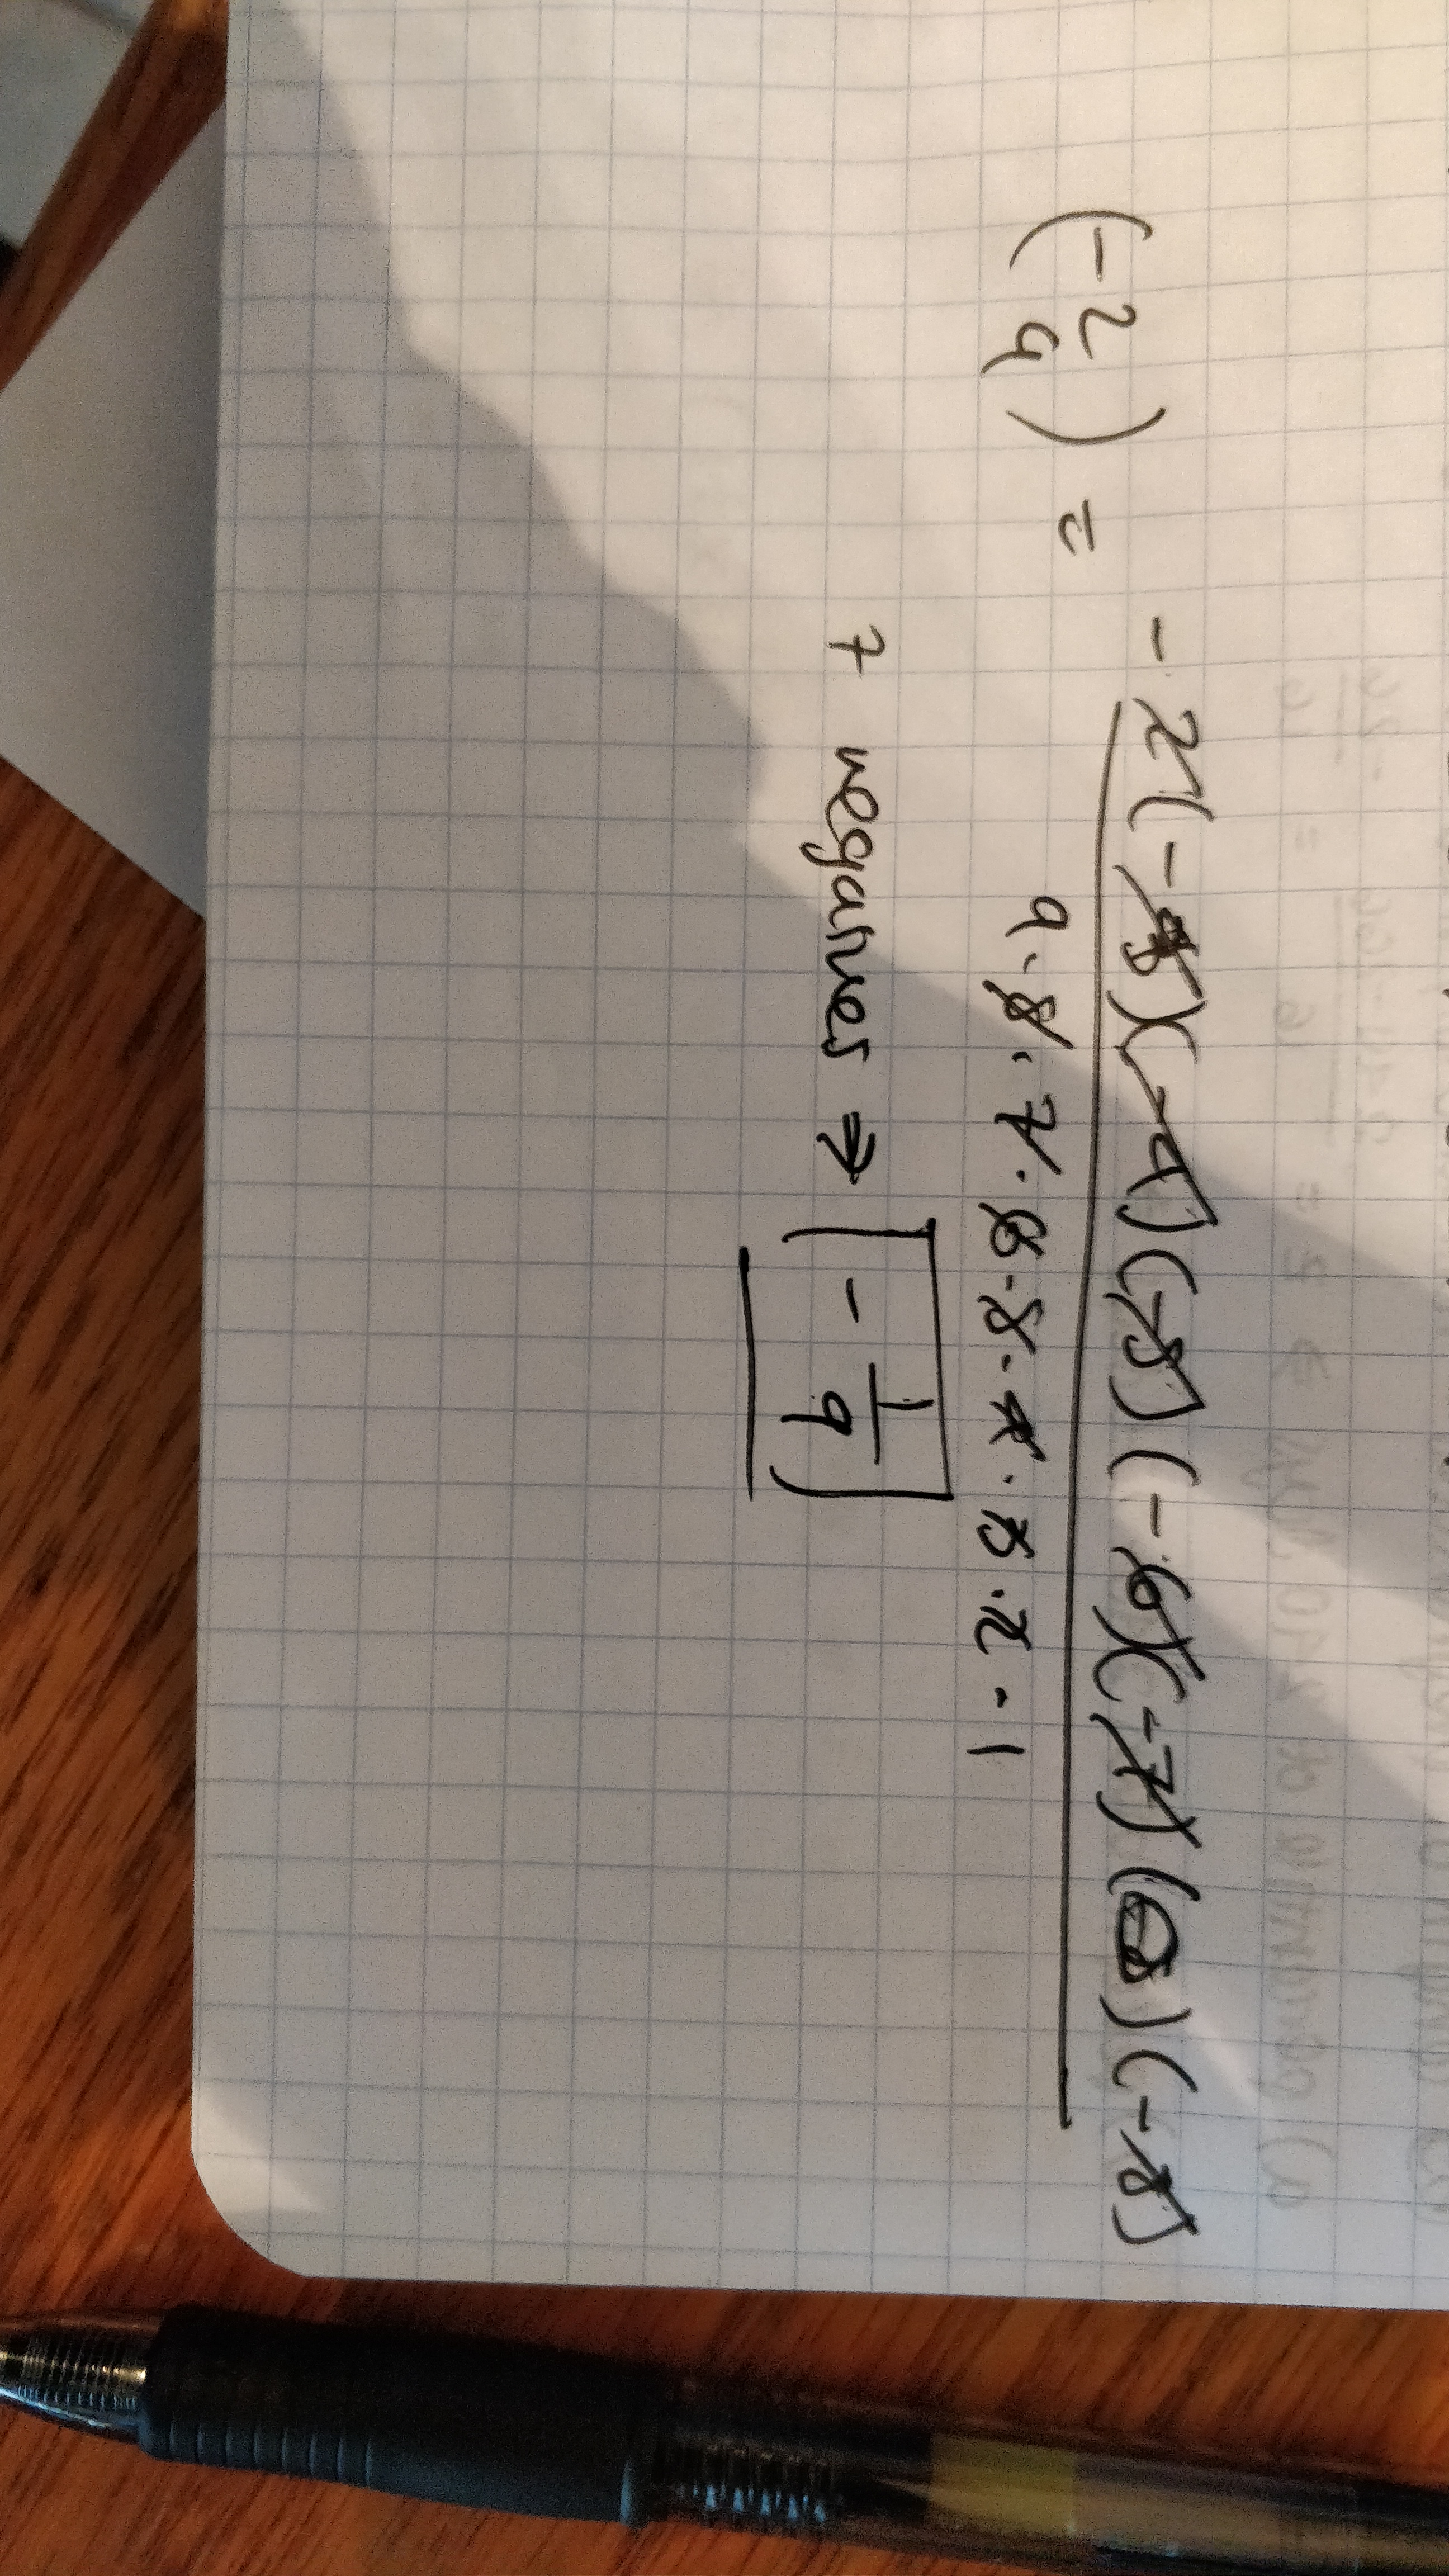 (-2 9) = -2(-3)(-4)(-5)(-6)(-7)(-8)
9·8·7·6·5·4·3·2·1
7 negatives ⇒ [-1/9]